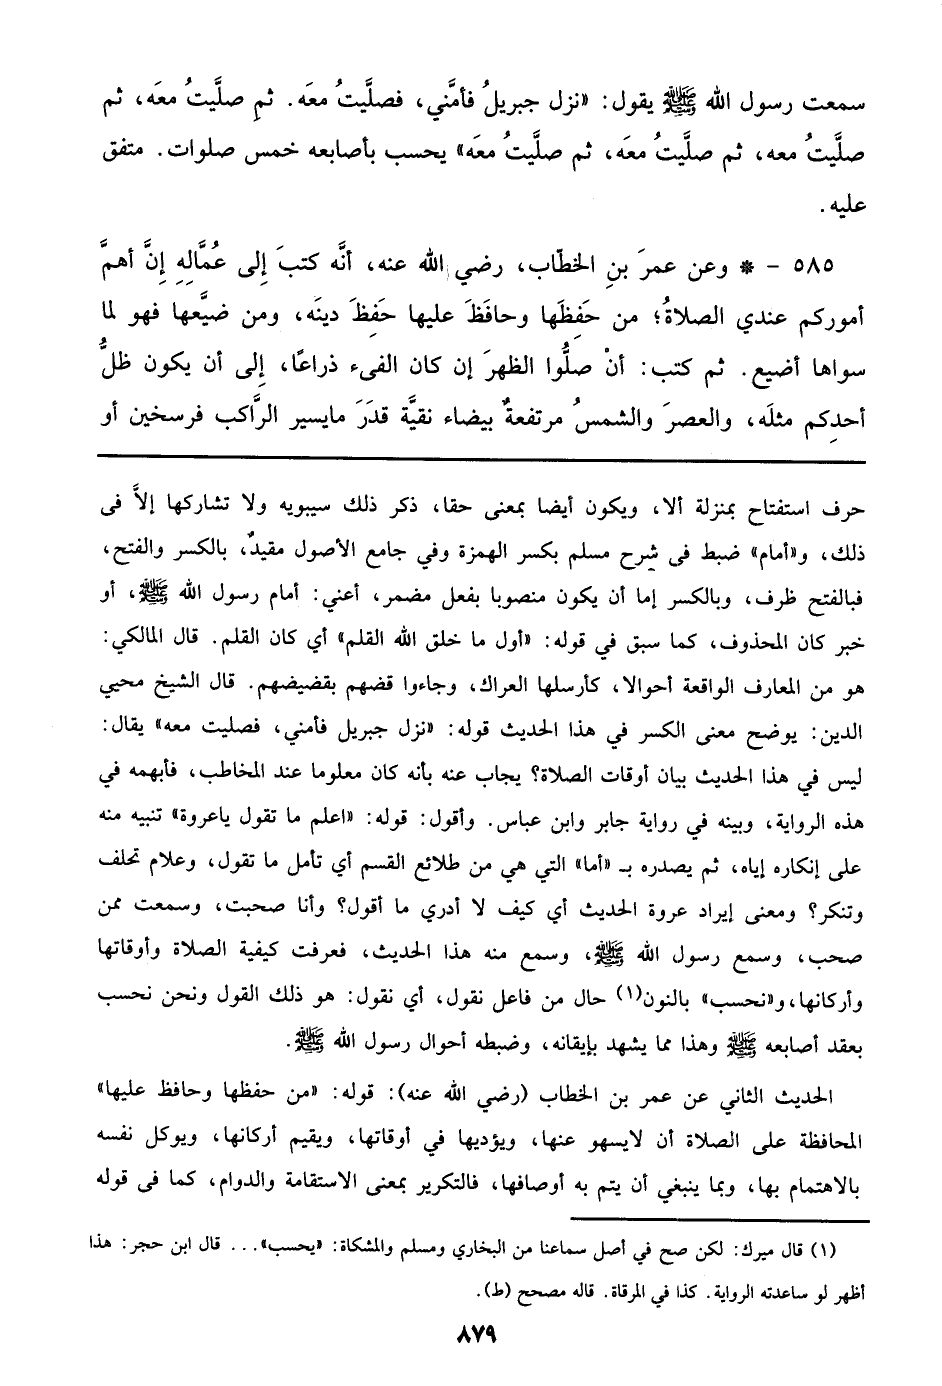 سمعت رسول الله ﷺ يقول: «نزل جبريلُ فأمَّني، فصلَّيتُ معَه. ثمِ صلَّيتُ معَه، ثم
صلَّيتُ معه، ثم صلَّيتُ معَه، ثم صلَّيتُ معَه» يحسب بأصابعه خمس صلوات. متفق
عليه.
٥٨٥ - * وعن عمرَ بنِ الخطّاب، رضي الله عنه، أنَّه كتبَ إِلى عُمَّالِهِ إِنَّ أهمَّ
أموركم عندي الصلاةُ؛ من حَفِظَها وحافَظَ عليها حَفِظَ دينَه، ومن ضيَّعها فهو لما
سواها أضيع. ثم كتب: أنْ صلُّوا الظهرَ إن كان الفىء ذراعًا، إِلى أن يكون ظلُّ
أحدِكم مثلَه، والعصرَ والشمسُ مرتفعةٌ بيضاء نقيَّة قدَرَ مايسير الرَّاكب فرسخين أو
حرف استفتاح بمنزلة ألا، ويكون أيضا بمعنى حقا، ذكر ذلك سيبويه ولا تشاركها إلاَّ فى
ذلك، و«أمام» ضبط فى شرح مسلم بكسر الهمزة وفي جامع الأصول مقيدٌ، بالكسر والفتح،
فبالفتح ظرف، وبالكسر إما أن يكون منصوبا بفعل مضمر، أعني: أمام رسول الله ﷺ، أو
خبر كان المحذوف، كما سبق في قوله: «أول ما خلق الله القلم» أي كان القلم. قال المالكي:
هو من المعارف الواقعة أحوالا، كأرسلها العراك، وجاءوا قضهم بقضيضهم. قال الشيخ محيي
الدين: يوضح معنى الكسر في هذا الحديث قوله: «نزل جبريل فأمني، فصليت معه» يقال:
ليس في هذا الحديث بيان أوقات الصلاة؟ يجاب عنه بأنه كان معلوما عند المخاطب، فأبهمه في
هذه الرواية، وبينه في رواية جابر وابن عباس. وأقول: قوله: «اعلم ما تقول ياعروة» تنبيه منه
على إنكاره إياه، ثم يصدره بـ «أما» التي هي من طلائع القسم أي تأمل ما تقول، وعلام تحلف
وتنكر؟ ومعنى إيراد عروة الحديث أي كيف لا أدري ما أقول؟ وأنا صحبت، وسمعت ممن
صحب، وسمع رسول الله ﷺ، وسمع منه هذا الحديث، فعرفت كيفية الصلاة وأوقاتها
وأركانها، و«نحسب» بالنون(١) حال من فاعل نقول، أي نقول: هو ذلك القول ونحن نحسب
بعقد أصابعه ﷺ وهذا مما يشهد بإيقانه، وضبطه أحوال رسول الله ﷺ.
الحديث الثاني عن عمر بن الخطاب (رضي الله عنه): قوله: «من حفظها وحافظ عليها»
المحافظة على الصلاة أن لايسهو عنها، ويؤديها في أوقاتها، ويقيم أركانها، ويوكل نفسه
بالاهتمام بها، وبما ينبغي أن يتم به أوصافها، فالتكرير بمعنى الاستقامة والدوام، كما فى قوله
(١) قال ميرك: لكن صح في أصل سماعنا من البخاري ومسلم والمشكاة: «يحسب»... قال ابن حجر: هذا
أظهر لو ساعدته الرواية. كذا في المرقاة. قاله مصحح (ط).
٨٧٩